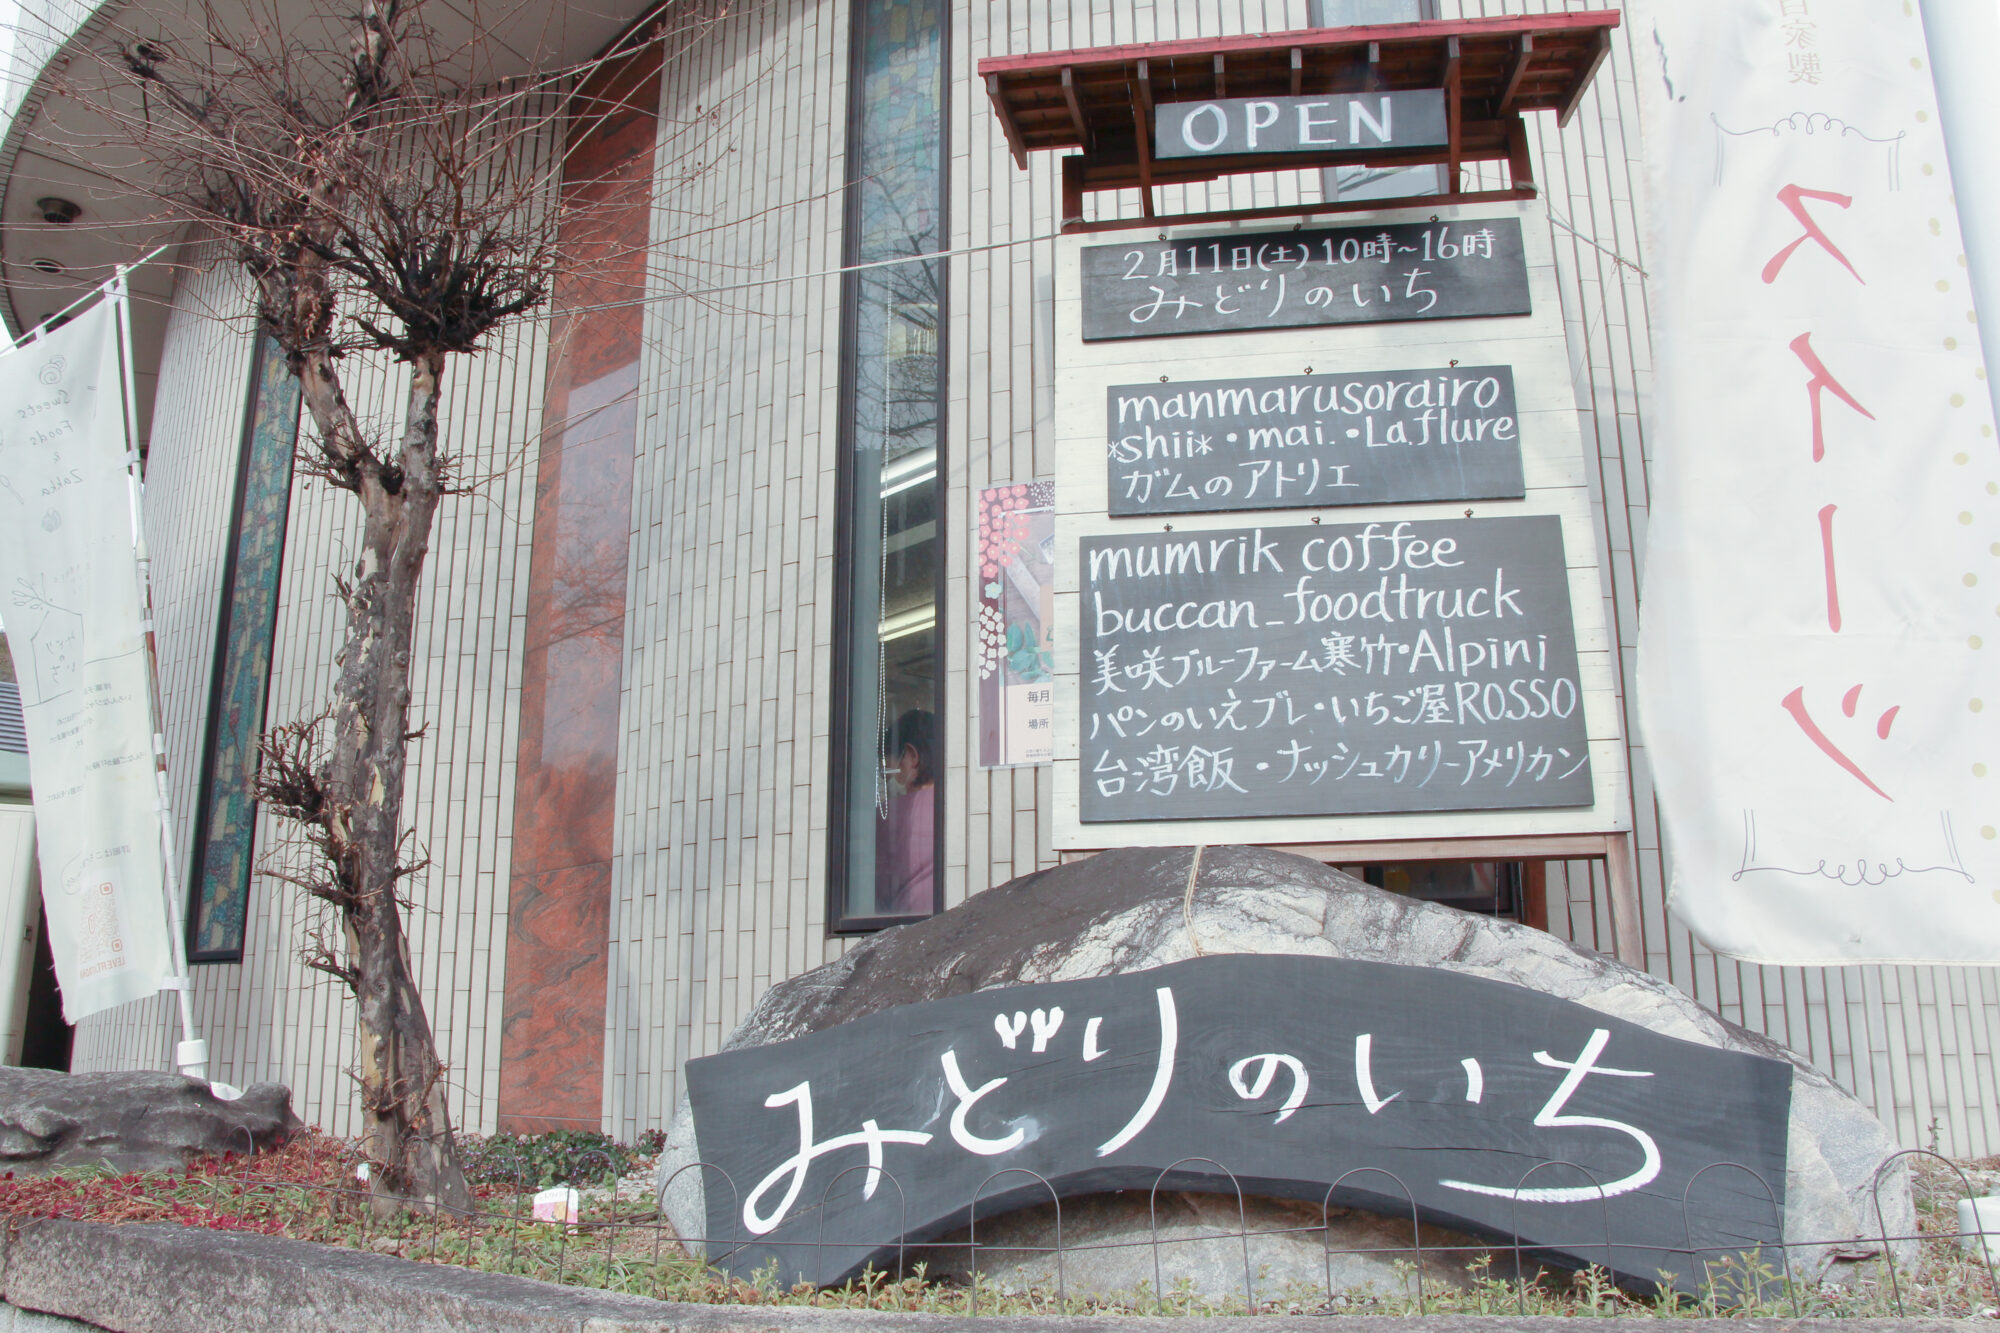 OPEN
2月11日(土)10時~16時
みどりのいち
manmarusorairo
*shii*・mai.・La.flure
ガムのアトリエ
mumrik coffee
buccan_foodtruck
美咲ブルーファーム寒竹・Alpini
パンのいえブレ・いちご屋ROSSO
台湾飯・ナッシュカリーアメリカン
みどりのいち
自家製
スイーツ
Sweets
Foods
&
Zakka
みどり
のいち
毎月
場所